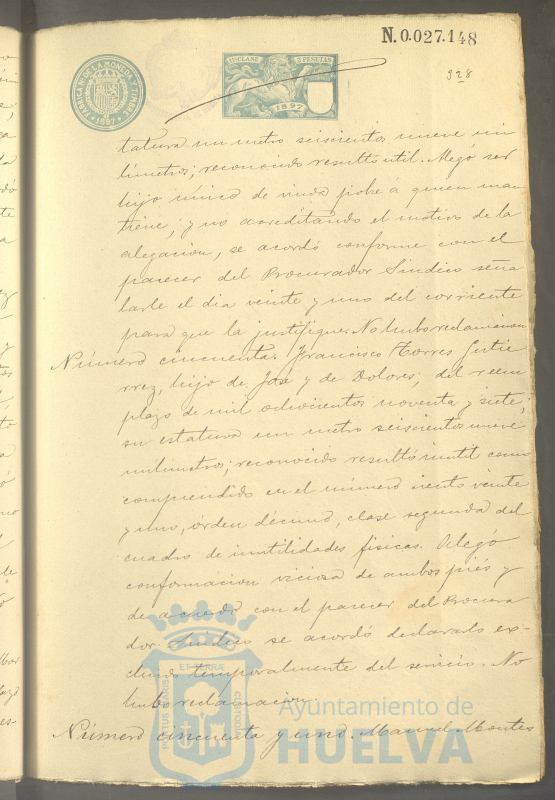 N.0.027.148
928
FÁBRICA DE LA MONEDA Y TIMBRE
1897
11ª CLASE 2 PESETAS
1897
tatura un metro seiscientos nueve mi
límetros; reconocido resultó útil. Alegó ser
hijo único de viuda pobre a quien man
tiene, y no acreditando el motivo de la
alegacion, se acordó conforme con el
parecer del Procurador Sindico seña
larle el dia veinte y uno del corriente
para que la justifique. No hubo reclamacion
Número cincuenta. Francisco Torres Gutie
rrez, hijo de José y de Dolores; del reem
plazo de mil ochocientos noventa y siete;
su estatura un metro seiscientos nueve
milimetros; reconocido resultó inutil como
comprendido en el número ciento veinte
y uno, órden décimo, clase segunda del
cuadro de inutilidades fisicas. Alegó
conformacion viciosa de ambos piés y
de acuerdo con el parecer del Procura
dor Sindico se acordó declararlo ex-
cluido temporalmente del servicio. No
hubo reclamacion.
Número cincuenta y uno. Manuel Montes
PORTUS MARIS ET TERRÆ CUSTODIA
Ayuntamiento de
HUELVA